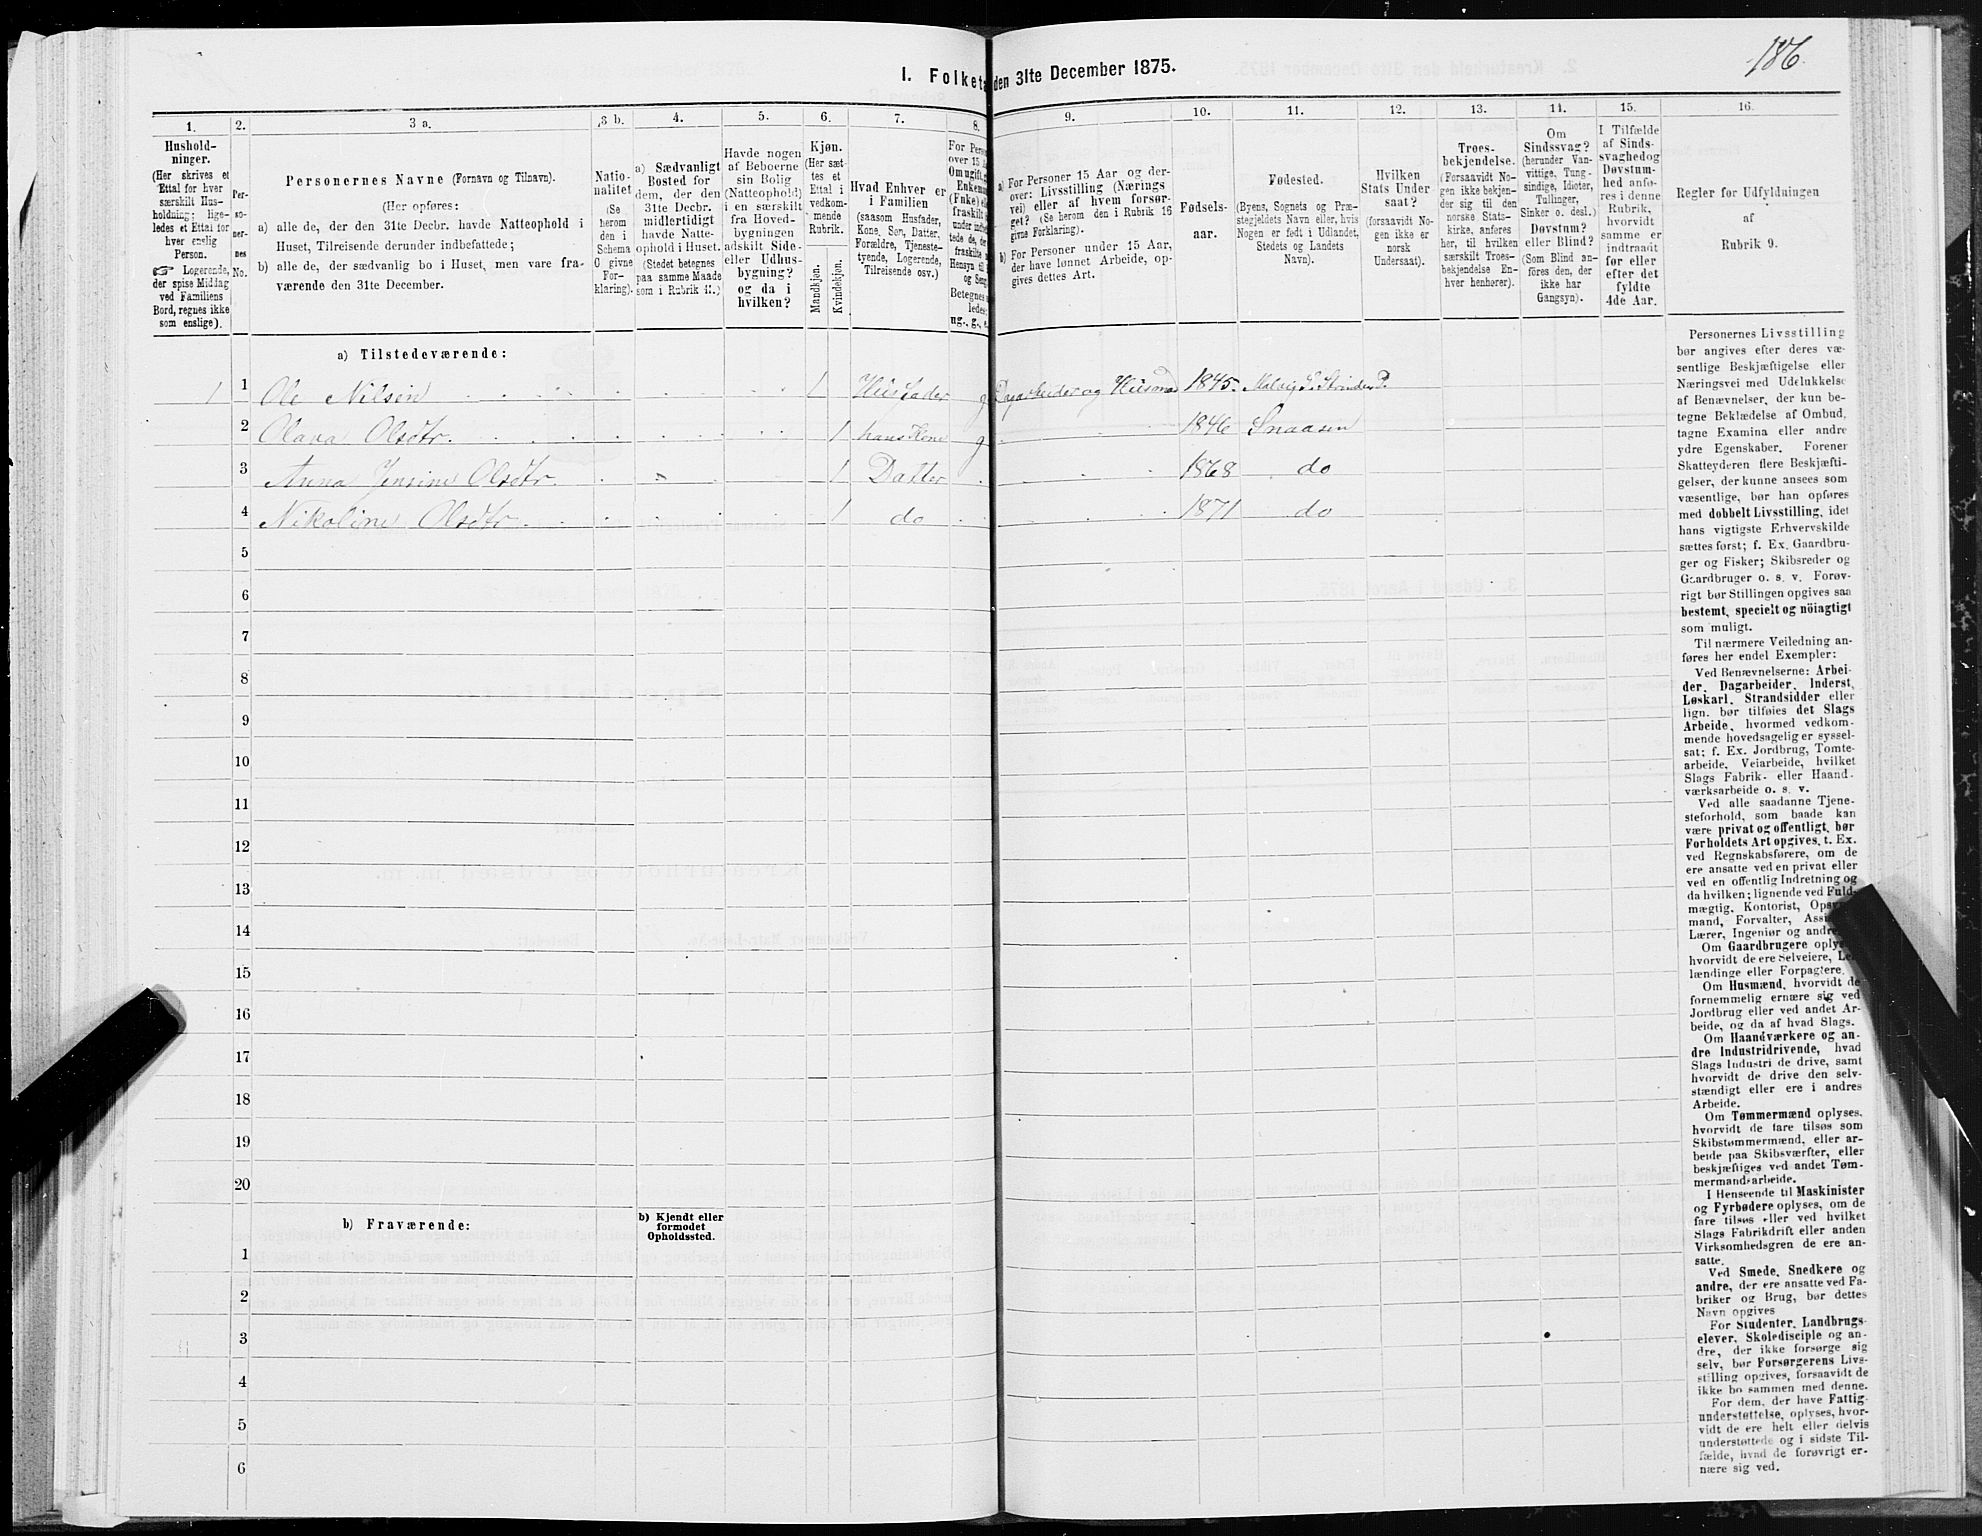 186.
I. Folketa den 31te December 1875.
1. 2. 3 a. 3 b. 4. 5. 6. 7. 8. 9. 10. 11. 12. 13. 14. 15. 16.
Hushold-
ninger.
(Her skrives et
Ettal for hver
særskilt Hus-
holdning; lige-
ledes et Ettal for
hver enslig
Person.
☞ Logerende,
der spise Middag
ved Familiens
Bord, regnes ikke
som enslige).
Per-
so-
ner-
nes
No.
Personernes Navne (Fornavn og Tilnavn).
(Her opføres:
a) alle de, der den 31te Decbr. havde Natteophold i
Huset, Tilreisende derunder indbefattede;
b) alle de, der sædvanlig bo i Huset, men vare fra-
værende den 31te December.
Natio-
nalitet
(Se
herom
den i
Schema
O givne
For-
klaring).
a) Sædvanligt
Bosted for
dem, der den
31te Decbr.
midlertidigt
havde Natte-
ophold i Huset.
(Stedet betegnes
paa samme Maade
som i Rubrik 11.)
Havde nogen
af Beboerne
sin Bolig
(Natteophold)
i en særskilt
fra Hoved-
bygningen
adskilt Side-
eller Udhus-
bygning?
og da i
hvilken?
Kjøn.
(Her sæt-
tes et
Ettal i
vedkom-
mende
Rubrik.
Mandkjøn.
Kvindekjøn.
Hvad Enhver er
i Familien
(saasom Husfader,
Kone, Søn, Datter,
Forældre, Tjeneste-
tyende, Logerende,
Tilreisende osv.)
For Perso
over 15 Aa
Om ugift, g
Enkema
(Fnke) el
fraskilt
under indbef
tede de, der
fraskilte
Hensyn til
og Seng
Betegnes
ledes:
ug., g., e.
a) For Personer 15 Aar og der-
over: Livsstilling (Nærings
vei) eller af hvem forsør-
get? (Se herom den i Rubrik 16
givne Forklaring).
b) For Personer under 15 Aar,
der have lønnet Arbeide, op-
gives dettes Art.
Fødsels-
aar.
Fødested.
(Byens, Sognets og Præ-
stegjeldets Navn eller, hvis
Nogen er født i Udlandet,
Stedets og Landets
Navn).
Hvilken
Stats Under
saat?
(forsaavidt No-
gen ikke er
norsk
Undersaat).
Troes-
bekjendelse.
(Forsaavidt No-
gen ikke bekjen-
der sig til den
norske Stats-
kirke, anføres
her, til hvilken
særskilt Troes-
bekjendelse En-
hver henhører).
Om
Sindssvag?
(herunder Van-
vittige, Tung-
sindige, Idioter,
Tullinger,
Sinker o. desl.)
Døvstum?
eller Blind?
(Som Blind an-
føres den, der
ikke har
Gangsyn).
I Tilfælde
af Sinds-
svaghedog
Døvstum-
hed anfø-
res i denne
Rubrik,
hvorvidt
samme er
indtraadt
før eller
efter det
fyldte
4de Aar.
Regler for Udfyldningen
af
Rubrik 9.
a) Tilstedeværende:
1 1 Ole Nilsen 1 Husfader g Dagarbeider og Husmand 1845. Malvig S. Strinden P.
2 Olava Olsdtr. 1 hans Kone g 1846 Snaasen
3 Anna Jensine Olsdtr. 1 Datter 1868 do
4 Nikoline Olsdtr. 1 do 1871 do
5
6
7
8
9
10
11
12
13
14
15
16
17
18
19
20
b) Fraværende:
b) Kjendt eller
formodet
Opholdssted.
1
2
3
4
5
6
Personernes Livsstilling
bør angives efter deres væ-
sentlige Beskjæftigelse eller
Næringsvei med Udelukkelse
af Benævnelser, der kun be-
tegne Beklædelse af Ombud,
tagne Examina eller andre
ydre Egenskaber. Forener
Skatteyderen flere Beskjæfti-
gelser, der kunne ansees som
væsentlige, bør han opføres
med dobbelt Livsstilling, idet
hans vigtigste Erhvervskilde
sættes først; f. Ex. Gaardbru-
ger og Fisker; Skibsreder og
Gaardbruger o. s. v. Forøv-
rigt bør Stillingen opgives saa
bestemt, specielt og nöiagtigt
som muligt.
Til nærmere Veiledning an-
føres her endel Exempler:
Ved Benævnelserne: Arbei-
der, Dagarbeider, Inderst,
Løskarl, Strandsidder eller
lign. bør tilføies det Slags
Arbeide, hvormed vedkom-
mende hovedsagelig er syssel-
sat; f. Ex. Jordbrug, Tomte-
arbeide, Veiarbeide, hvilket
Slags Fabrik- eller Haand-
værksarbeide o. s. v.
Ved alle saadanne Tjene-
steforhold, som baade kan
være privat og offentligt, bør
Forholdets Art opgives, t. Ex.
ved Regnskabsførere, om de
ere ansatte ved en privat eller
ved en offentlig Indretning og
da hvilken; lignende ved Fuld-
mægtig, Kontorist, Opsyns-
mand, Forvalter, Assi
Lærer, Ingeniør og andre
Om Gaardbrugere oplyse
hvorvidt de ere Selveiere, Lei
lændinge eller Forpagtere.
Om Husmænd, hvorvidt de
fornemmelig ernære sig ved
Jordbrug eller ved andet Ar-
beide, og da af hvad Slags.
Om Haandværkere og an-
dre Industridrivende, hvad
Slags Industri de drive, samt
hvorvidt de drive den selv-
stændigt eller ere i andres
Arbeide.
Om Tømmermænd oplyses,
hvorvidt de fare tilsøs som
Skibstømmermænd, eller ar-
beide paa Skibsværfter, eller
beskjæftiges ved andet Tøm-
mermandsarbeide.
I Henseende til Maskinister
og Fyrbødere oplyses, om de
fare tilsøs eller ved hvilket
Slags Fabrikdrift eller anden
Virksomhedsgren de ere an-
satte.
Ved Smede, Snedkere og
andre, der ere ansatte ved Fa-
briker og Brug, bør dettes
Navn opgives
For Studenter, Landbrugs-
elever, Skoledisciple og an-
dre, der ikke forsørge sig
selv, bør Forsørgerens Livs-
stilling opgives, forsaavidt de
ikke bo sammen med denne.
For dem, der have Fattig-
understøttelse, oplyses, hvor-
vidt de ere helt eller delvis
understøttede og i sidste Til-
fælde, hvad de forøvrigt er-
nære sig ved.